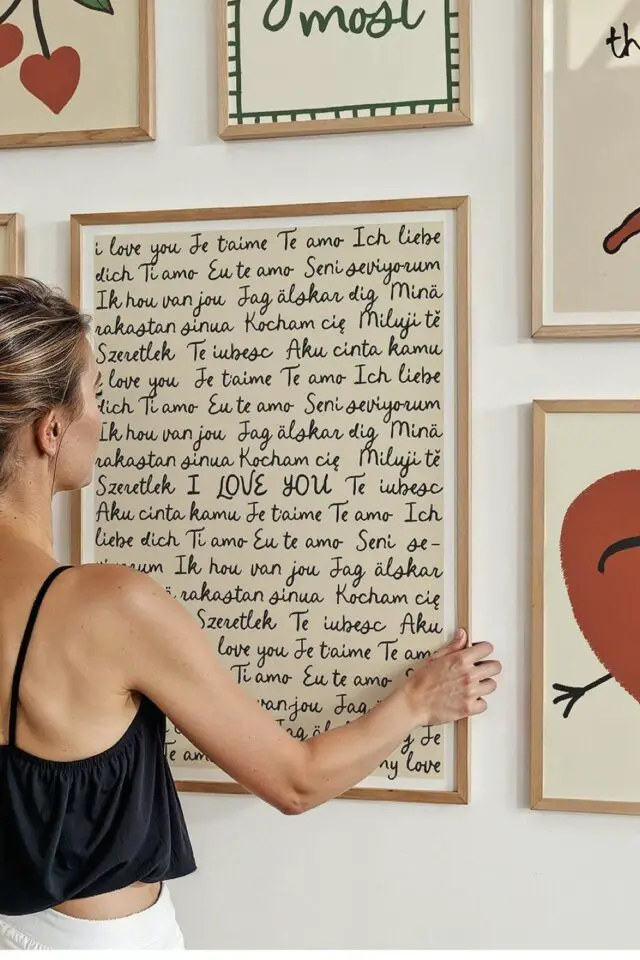 most
th
i love you Je t'aime Te amo Ich liebe
dich Ti amo Eu te amo Seni seviyorum
Ik hou van jou Jag älskar dig Minä
rakastan sinua Kocham cię Miluji tě
Szeretlek Te iubesc Aku cinta kamu
love you Je taime Te amo Ich liebe
dich Ti amo Eu te amo Seni seviyorum
Ik hou van jou Jag älskar dig Minä
rakastan sinua Kocham cię Miluji tě
Szeretlek I LOVE YOU Te iubesc
Aku cinta kamu Je t'aime Te amo Ich
liebe dich Ti amo Eu te amo Seni se-
Ik hou van jou Jag älskar
rakastan sinua Kocham cię
Szeretlek Te iubesc Aku
love you Je t'aime Te am
Ti amo Eu te amo S
van jou Jag
Je
Te am my love